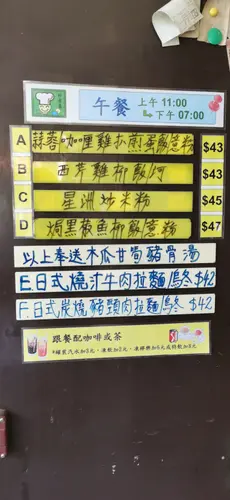 午餐 上午 11:00
↓下午 07:00
A 蒜蓉/咖哩雞扒煎蛋飯/意粉 $43
B 西芹雞柳飯/河 $43
C 星洲炒米粉 $45
D 焗黑椒魚柳飯/意粉 $47
以上奉送木瓜甘筍豬骨湯
E.日式燒汁牛肉拉麵/烏冬 $42
F.日式炭燒豬頸肉拉麵/烏冬 $42
跟餐配咖啡或茶